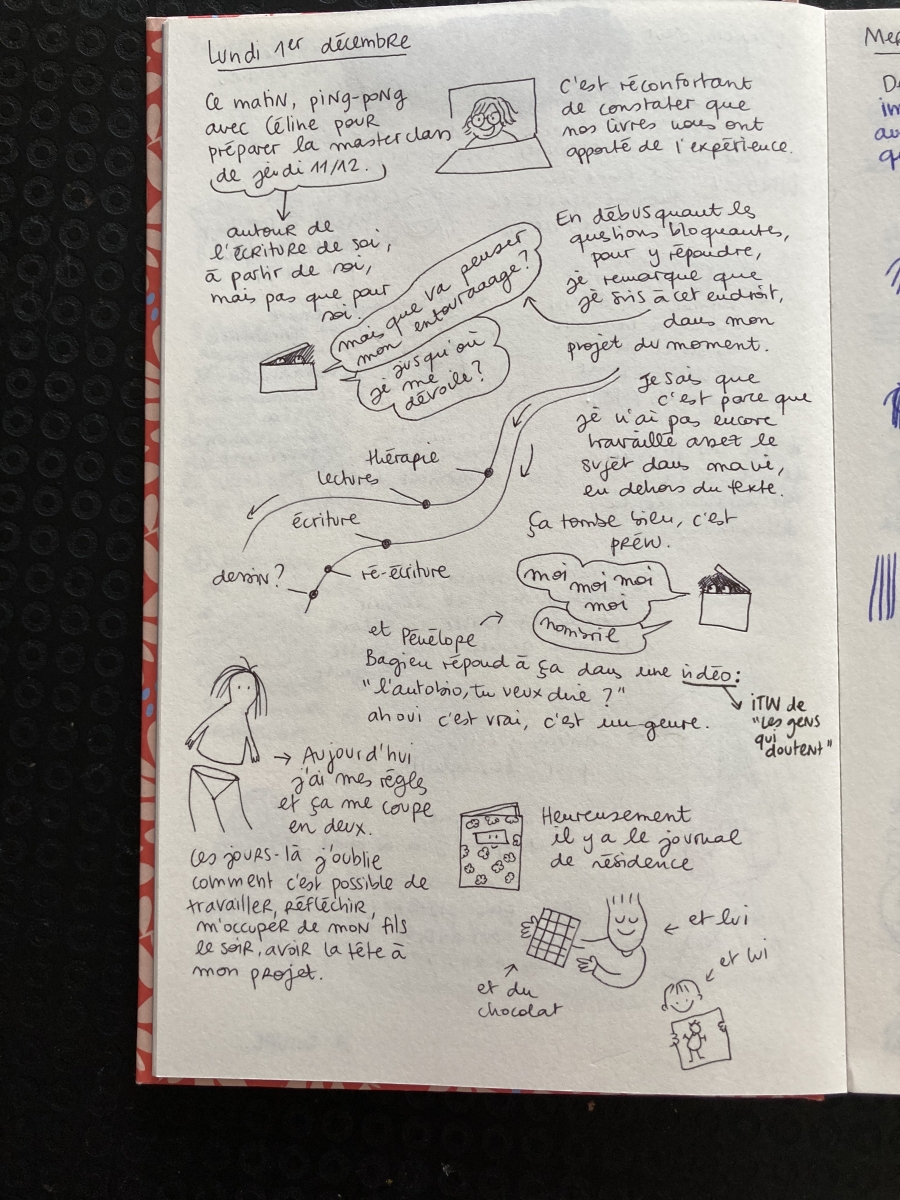 Lundi 1er décembre
Ce matin, ping-pong
avec Céline pour
préparer la masterclass
de jeudi 11/12.
autour de
l'écriture de soi,
à partir de soi,
mais pas que pour
soi.
C'est réconfortant
de constater que
nos livres nous ont
apporté de l'expérience.
En débusquant les
questions bloquantes,
pour y répondre,
je remarque que
je suis à cet endroit,
dans mon
projet du moment.
mais que va penser
mon entouraaage?
jusqu'où
je me
dévoile?
Je sais que
c'est parce que
je n'ai pas encore
travaillé avec le
sujet dans ma vie,
en dehors du texte.
Ça tombe bien, c'est
prévu.
thérapie
lectures
écriture
ré-écriture
dessin?
moi
moi moi
moi
nombril
et Pénélope
Bagieu répond à ça dans une vidéo:
"l'autobio, tu veux dire?"
ah oui c'est vrai, c'est un genre.
iTW de
"Les gens
qui
doutent"
→ Aujourd'hui
j'ai mes règles
et ça me coupe
en deux.
Ces jours-là j'oublie
comment c'est possible de
travailler, réfléchir,
m'occuper de mon fils
le soir, avoir la tête à
mon projet.
Heureusement
il y a le journal
de résidence
← et lui
et du
chocolat
et lui
Mer
D
im
au
qu